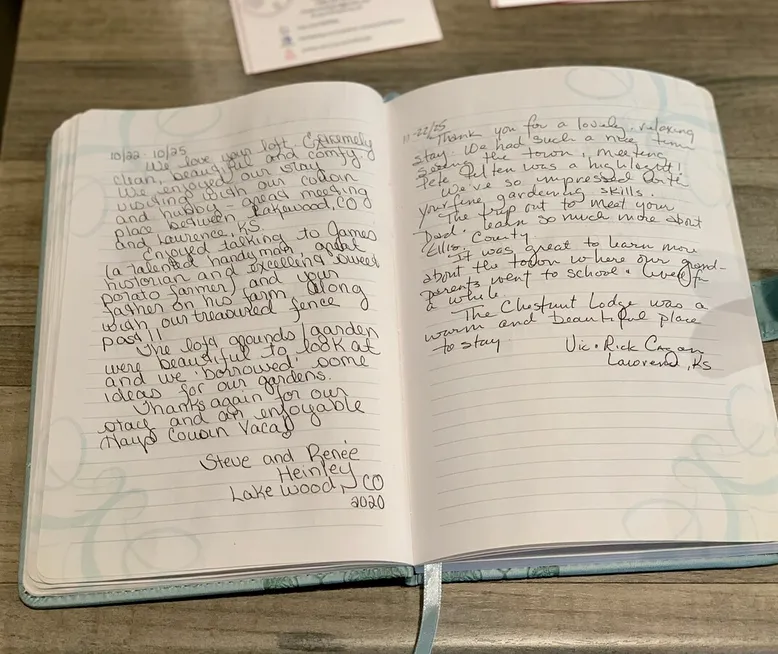 10/22 - 10/25
We love your loft. Extremely
clean, beautiful and comfy.
We enjoyed our stay
visiting with our cousin
and hubby - great meeting
place between Lakewood, CO
and Lawrence, KS.
Enjoyed talking to James
(a talented handyman, great
historian and excelling sweet
potato farmer) and your
father on his farm along
with our treasured fence
post!!
The loft grounds/garden
were beautiful to look at
and we "borrowed" some
ideas for our gardens.
Thanks again for our
stay and an enjoyable
Hays Cousin Vaca
Steve and Renée
Heinley
Lakewood, CO
2020
-22/25
Thank you for a lovely, relaxing
stay. We had such a nice time
seeing the town, meeting
Pete was a highlight!
We've so impressed
your fine gardening skills.
The trip out to meet your
Dad learn so much more about
Ellis County.
It was great to learn more
about the town where our grand-
parents went to school & lived for
a while.
The Chestnut Lodge was a
warm and beautiful place
to stay
Vic & Rick
Lawrence, KS